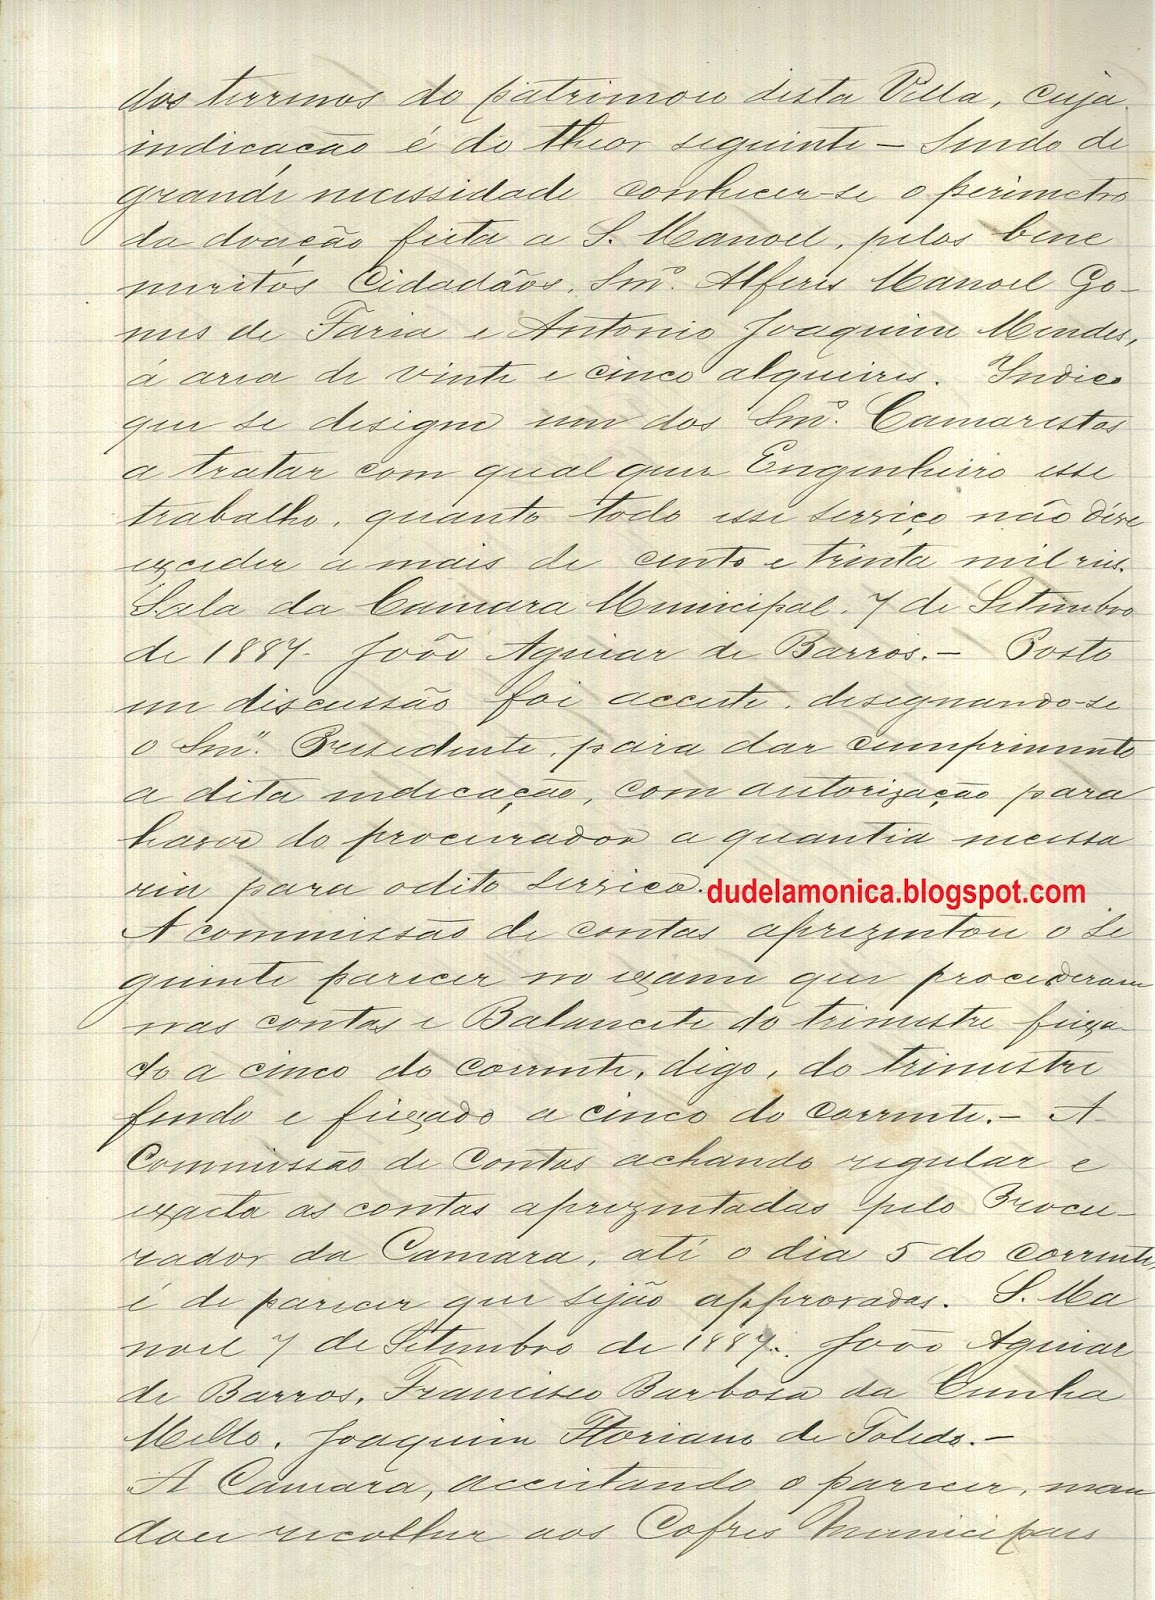 dos terrenos do patrimonio desta Villa, cuja
indicação é do theor seguinte – Sendo de
grande necessidade conhecer-se o perimetro
da doação feita a S. Manoel, pelos bene
meritos Cidadãos, Snr.ˢ Alferes Manoel Go-
mes de Faria e Antonio Joaquim Mendes,
á area de vinte e cinco alqueires. Indico
que se designe um dos Snr.ˢ Camaristas
a tratar com qualquer Engenheiro esse
trabalho, quanto todo esse serviço não deve
exceder a mais de cento e trinta mil reis.
Sala da Camara Municipal, 7 de Setembro
de 1887. João Aguiar de Barros. – Posto
em discussão foi acceite, designando-se
o Snr. Presidente, para dar cumprimento
a dita indicação, com autorização para
haver do procurador a quantia necessa
ria para o dito serviço.
dudelamonica.blogspot.com
A commissão de contas aprezentou o se
guinte parecer no exame que procederam
nas contas e Balancete do trimestre fixa-
do a cinco do corrente, digo, do trimestre
findo e fixado a cinco do corrente. – A
Commissão de Contas achando regular e
exacta as contas aprezentadas pelo Procu-
rador da Camara, até o dia 5 do corrente,
é de parecer que sejão approvadas. S. Ma
noel 7 de Setembro de 1887. João Aguiar
de Barros, Francisco Barbosa da Cunha
Mello, Joaquim Floriano de Toledo. –
A Camara, acceitando o parecer, man
dou recolher aos Cofres Municipaes